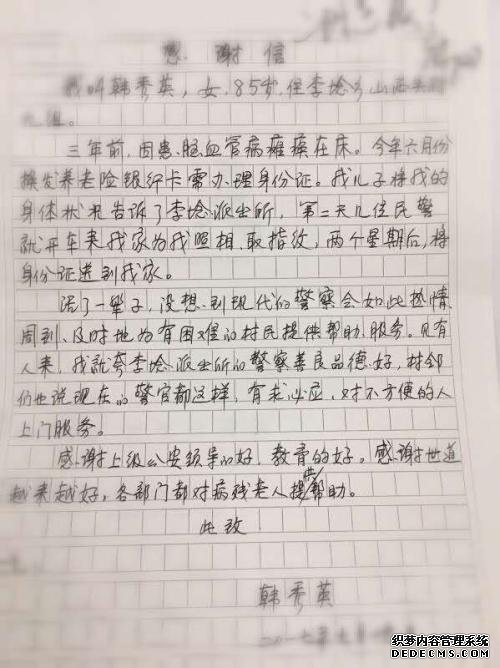 感谢信
我叫韩秀英，女，85岁，住李埝乡山西头村
九组。
三年前，因患、脑血管病瘫痪在床。今年六月份
换发养老险银行卡需办理身份证。我儿子将我的
身体状况告诉了李埝派出所，第二天几位民警
就开车来我家为我照相、取指纹，两个星期后，将
身份证送到我家。
活了一辈子，没想到现代的警察会如此热情、
周到、及时地为有困难的村民提供帮助、服务。见有
人来，我就夸李埝派出所的警察善良品德好，村邻
们也说现在的警官都这样，有求必应，对不方便的人
上门服务。
感谢上级公安领导的好，教育的好。感谢世道
越来越好，各部门都对病残老人提供帮助。
此致
韩秀英
二〇一七年七月
织梦内容管理系统
DEDECMS.COM